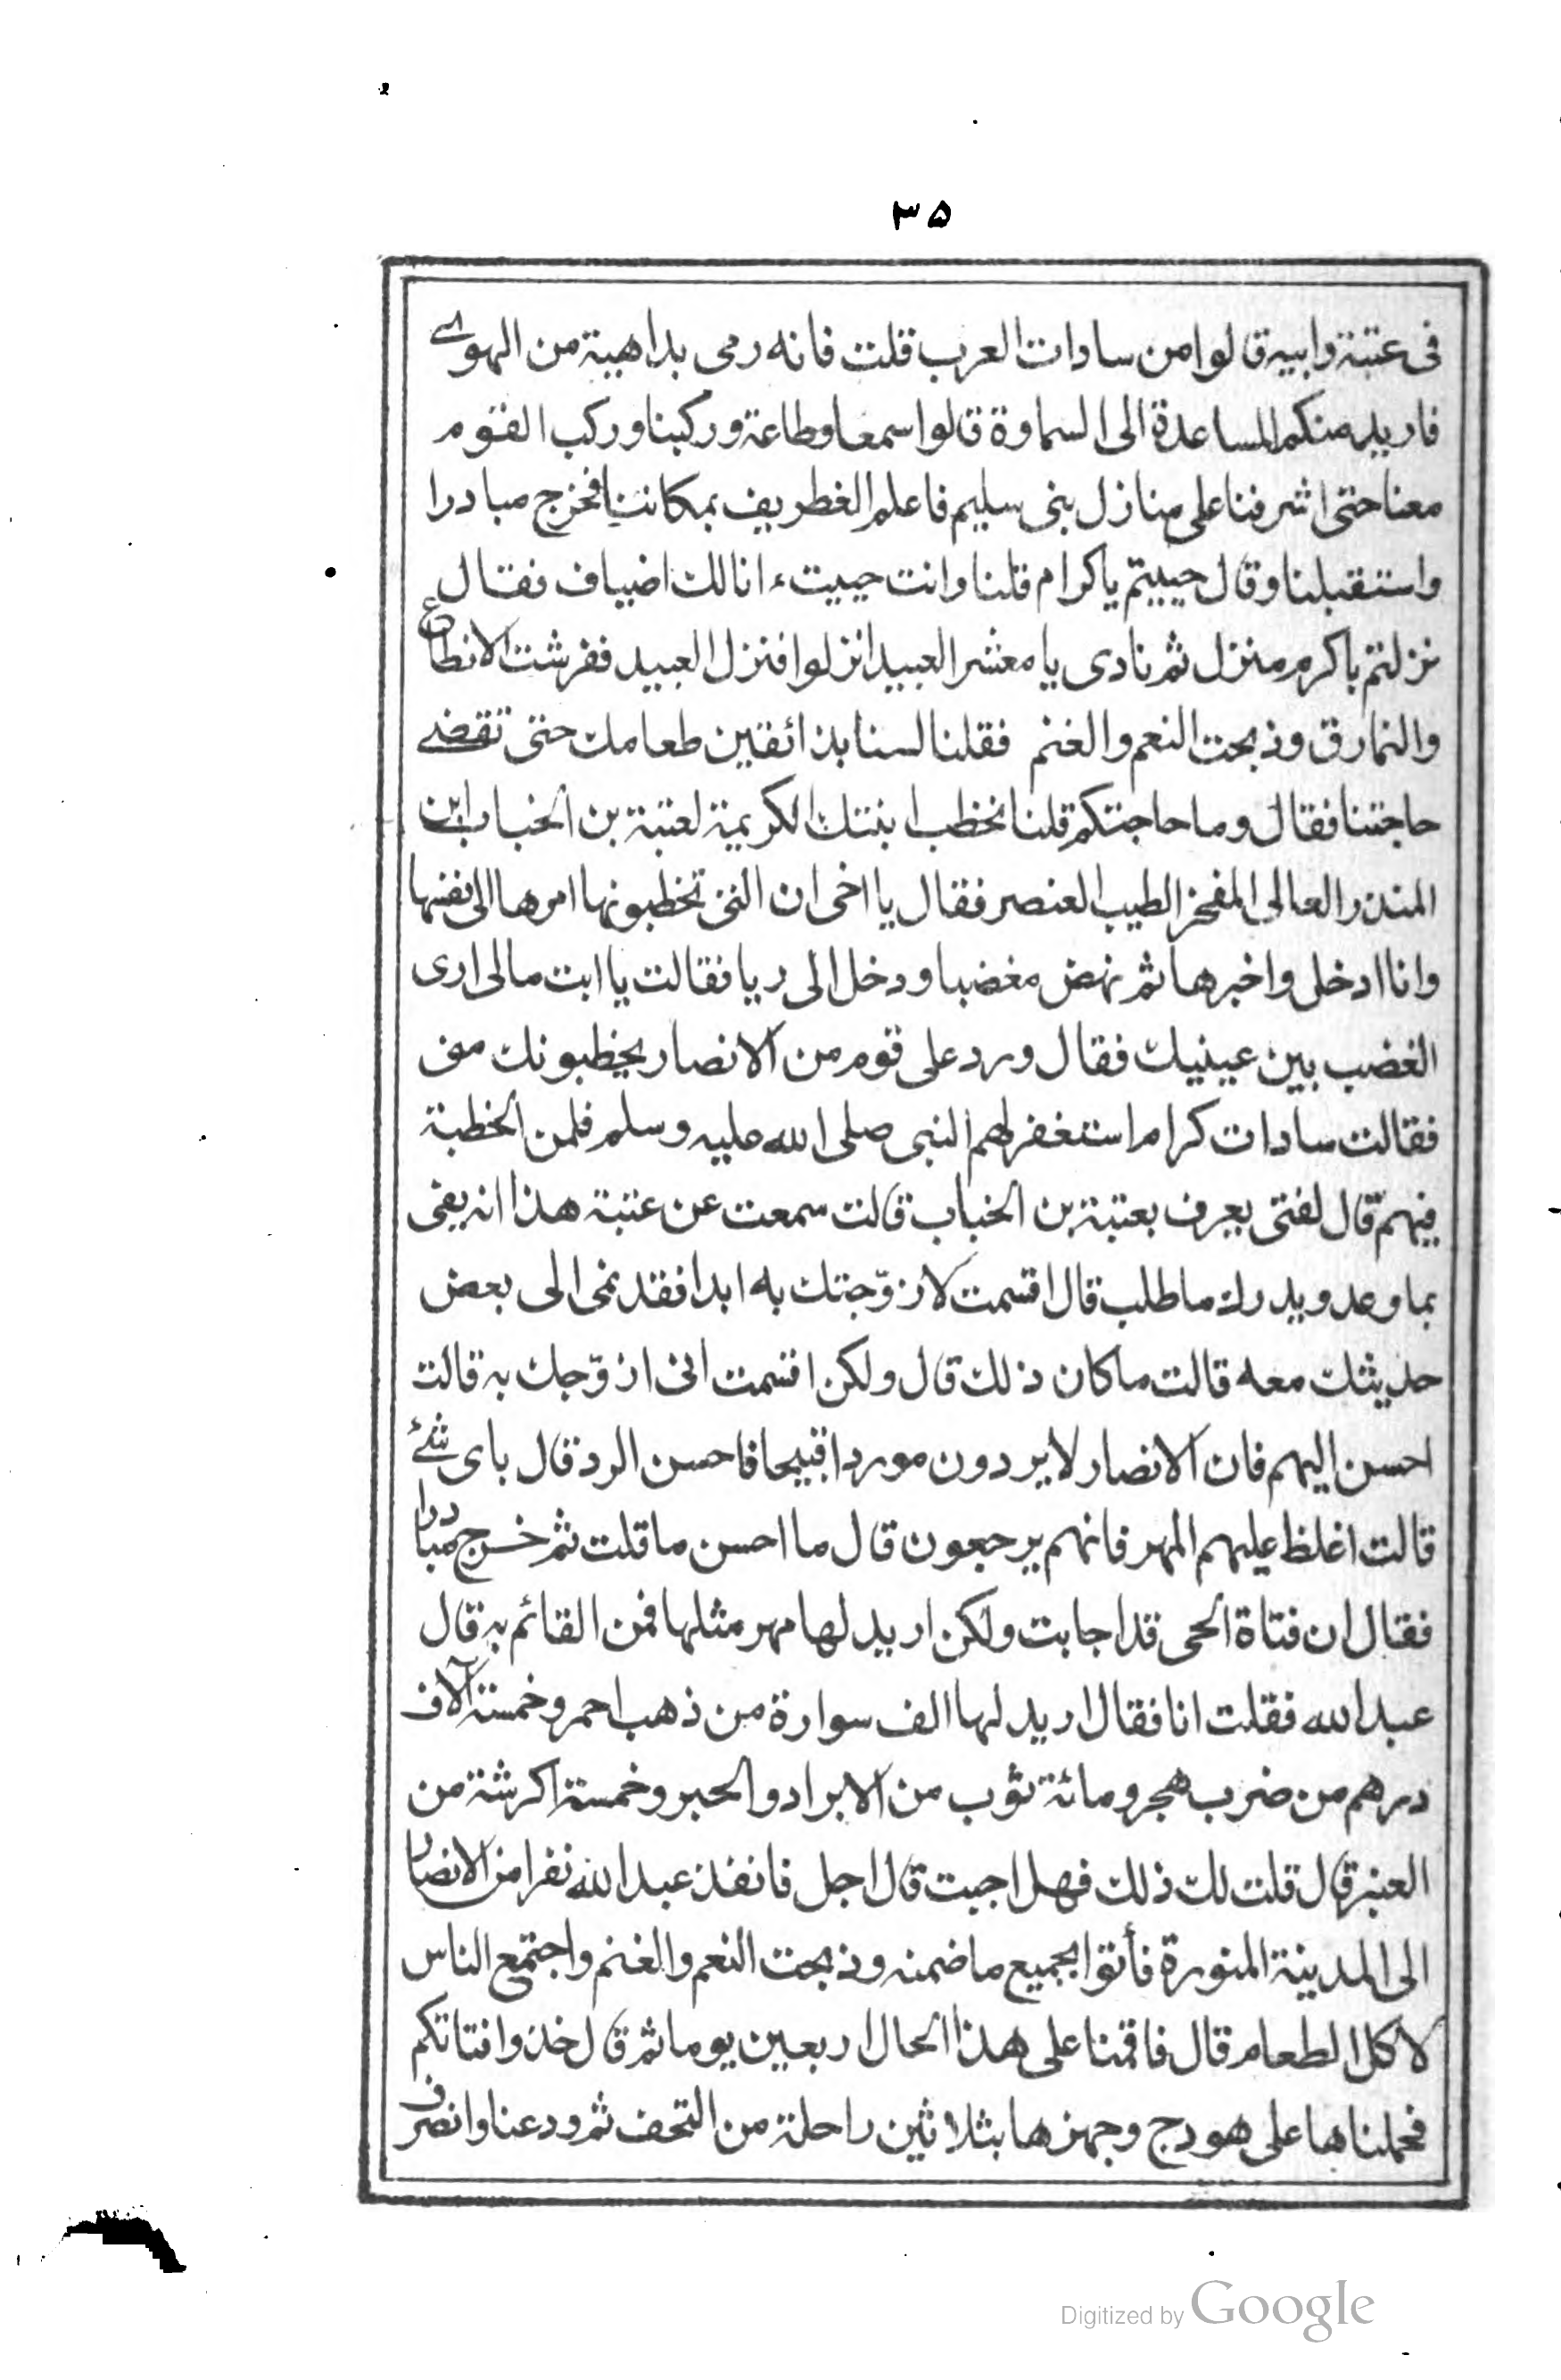 ٣۵
فى عتبة وابيه قالوا من سادات العرب قلت فانه رمى بداهية من الهوى
فاريد منكم المساعدة الى السماوة قالوا سمعا وطاعة وركبنا وركب القوم
معنا حتى اشرفنا على منازل بنى سليم فاعلم الغطريف بمكاننا فخرج مبادرا
واستقبلنا وقال حييتم يا كرام قلنا وانت حييت ء انا لك اضياف فقال
نزلتم باكرم منزل ثم نادى يا معشر العبيد انزلوا فنزل العبيد ففرشت الانطاع
والنمارق وذبحت النعم والغنم فقلنا لسنا بذائقين طعامك حتى تقضے
حاجتنا فقال وما حاجتكم قلنا نخطب ابنتك الكريمة لعتبة بن الخباب ابن
المنذر العالى المفخر الطيب العنصر فقال يا اخى ان التى تخطبونها امرها الى نفسها
وانا ادخل واخبرها ثم نهض مغضبا ودخل الى ريا فقالت يا ابت مالى ارى
الغضب بين عينيك فقال ورد على قوم من الانصار يخطبونك منى
فقالت سادات كرام استغفر لهم النبى صلى الله عليه وسلم فلمن الخطبة
فيهم قال لفتى يعرف بعتبة بن الخباب قالت سمعت عن عتبة هذا انه يفى
بما وعد ويدرك ما طلب قال اقسمت لازوّجتك به ابدا فقد نمى الى بعض
حديثك معه قالت ما كان ذلك قال ولكن اقسمت انى ازوّجك به قالت
احسن اليهم فان الانصار لا يردون موردا قبيحا فاحسن الرد قال باى شئے
قالت اغلظ عليهم المهر فانهم يرجعون قال ما احسن ما قلت ثم خرج مبادرا
فقال ان فتاة الحى قد اجابت ولكن اريد لها مهر مثلها فمن القائم به قال
عبد الله فقلت انا فقال اريد لها الف سوارة من ذهب احمر وخمسة آلاف
درهم من ضرب هجر ومائة ثوب من الابراد والحبر وخمسة اكرشة من
العنبر قال قلت لك ذلك فهل اجبت قال اجل فانفذ عبد الله نفرا من الانصار
الى المدينة المنورة فأتوا بجميع ما ضمنه وذبحت النعم والغنم واجتمع الناس
لاكل الطعام قال فاقمنا على هذا الحال اربعين يوما ثم قال خذوا فتاتكم
فحملناها على هودج وجهزها بثلاثين راحلة من التحف ثم ودعنا وانصرف
Digitized by Google